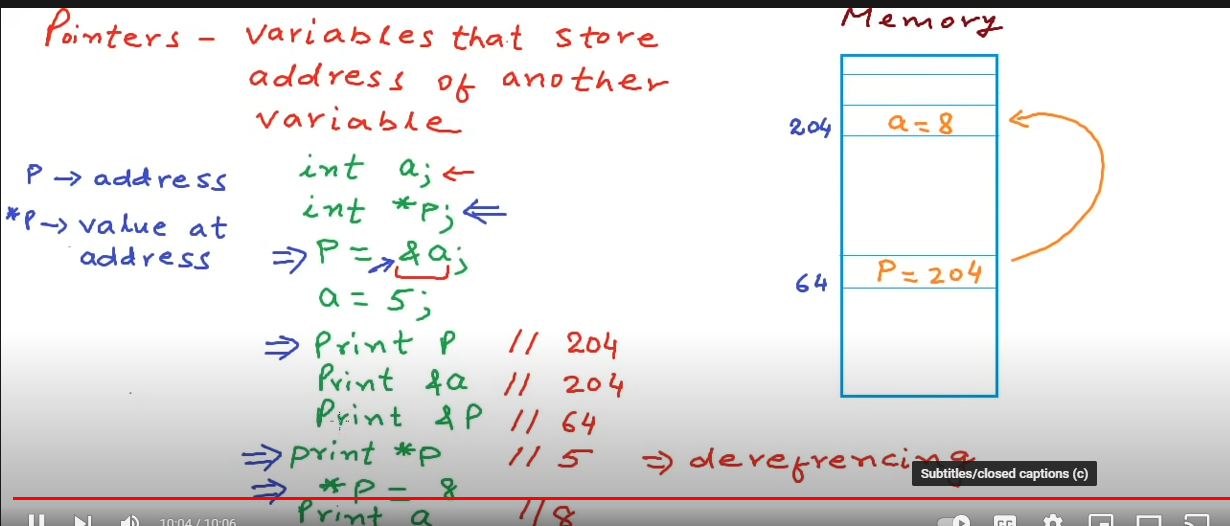 Pointers - variables that store
address of another
variable
Memory
P → address
*P → value at
address
int a; ←
int *P; ⇐
⇒ P = &a;
a = 5;
⇒ Print P // 204
Print &a // 204
Print &P // 64
⇒ print *P // 5 ⇒ derefrencing
⇒ *P = 8
Print a //8
204 a = 8
64 P = 204
Subtitles/closed captions (c)
10:04 / 10:06
CC